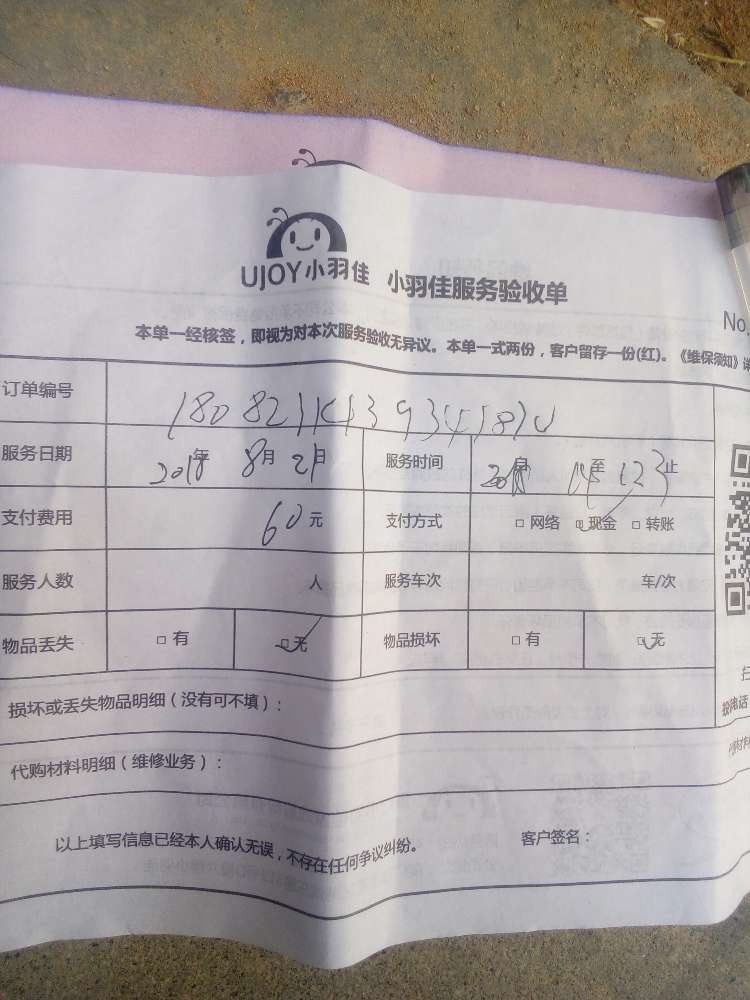 UJOY小羽佳 小羽佳服务验收单
No.
本单一经核签，即视为对本次服务验收无异议。本单一式两份，客户留存一份(红)。《维保须知》详
订单编号
服务日期 2018年 8月 21日 服务时间 至 止
支付费用 60元 支付方式 □ 网络 □ 现金 □ 转账
服务人数 人 服务车次 车/次
物品丢失 □ 有 □ 无 物品损坏 □ 有 □ 无
损坏或丢失物品明细（没有可不填）：
代购材料明细（维修业务）：
以上填写信息已经本人确认无误，不存在任何争议纠纷。 客户签名：